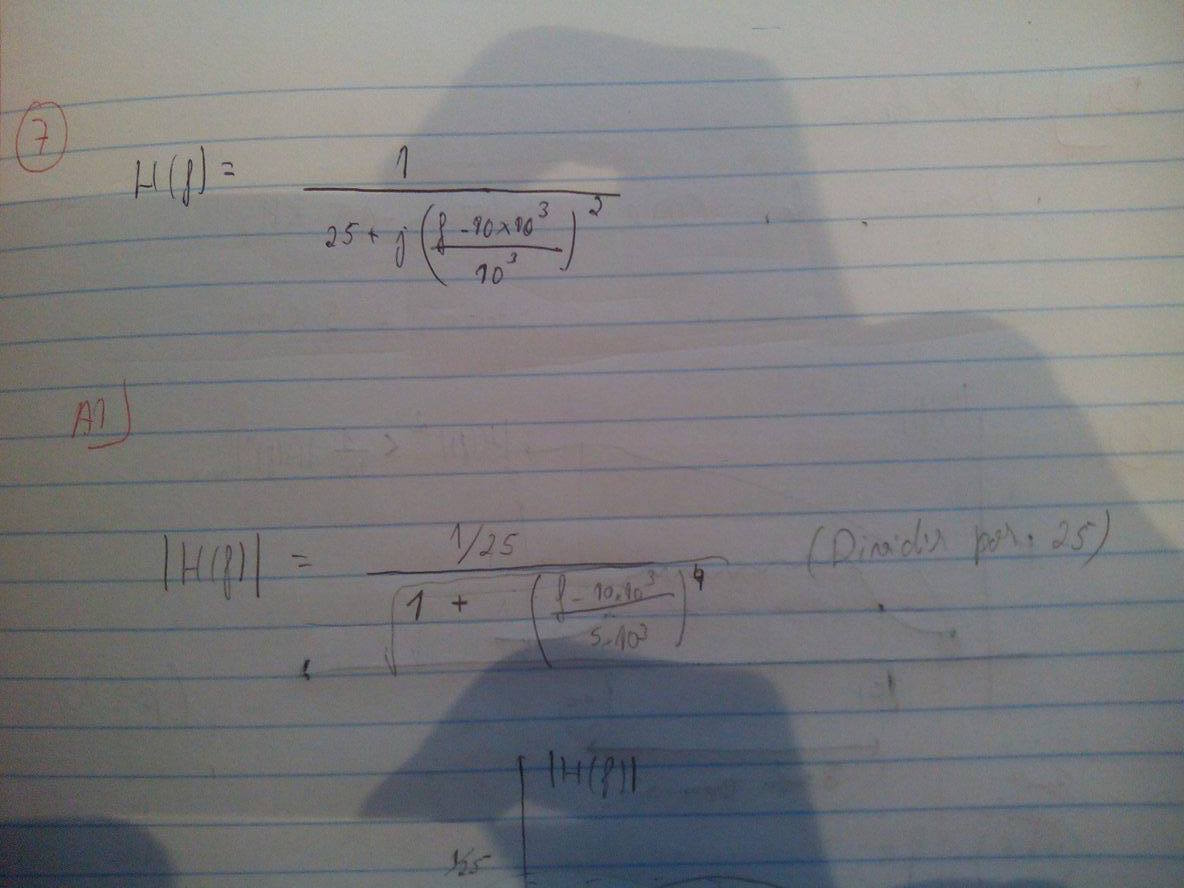 7
H(f) = 1 / (25 + j ((f - 10×10^3) / 10^3)^2)
A1)
|H(f)| = (1/25) / √(1 + ((f - 10×10^3) / 5·10^3)^4) (Dividir por. 25)
|H(f)|
1/25